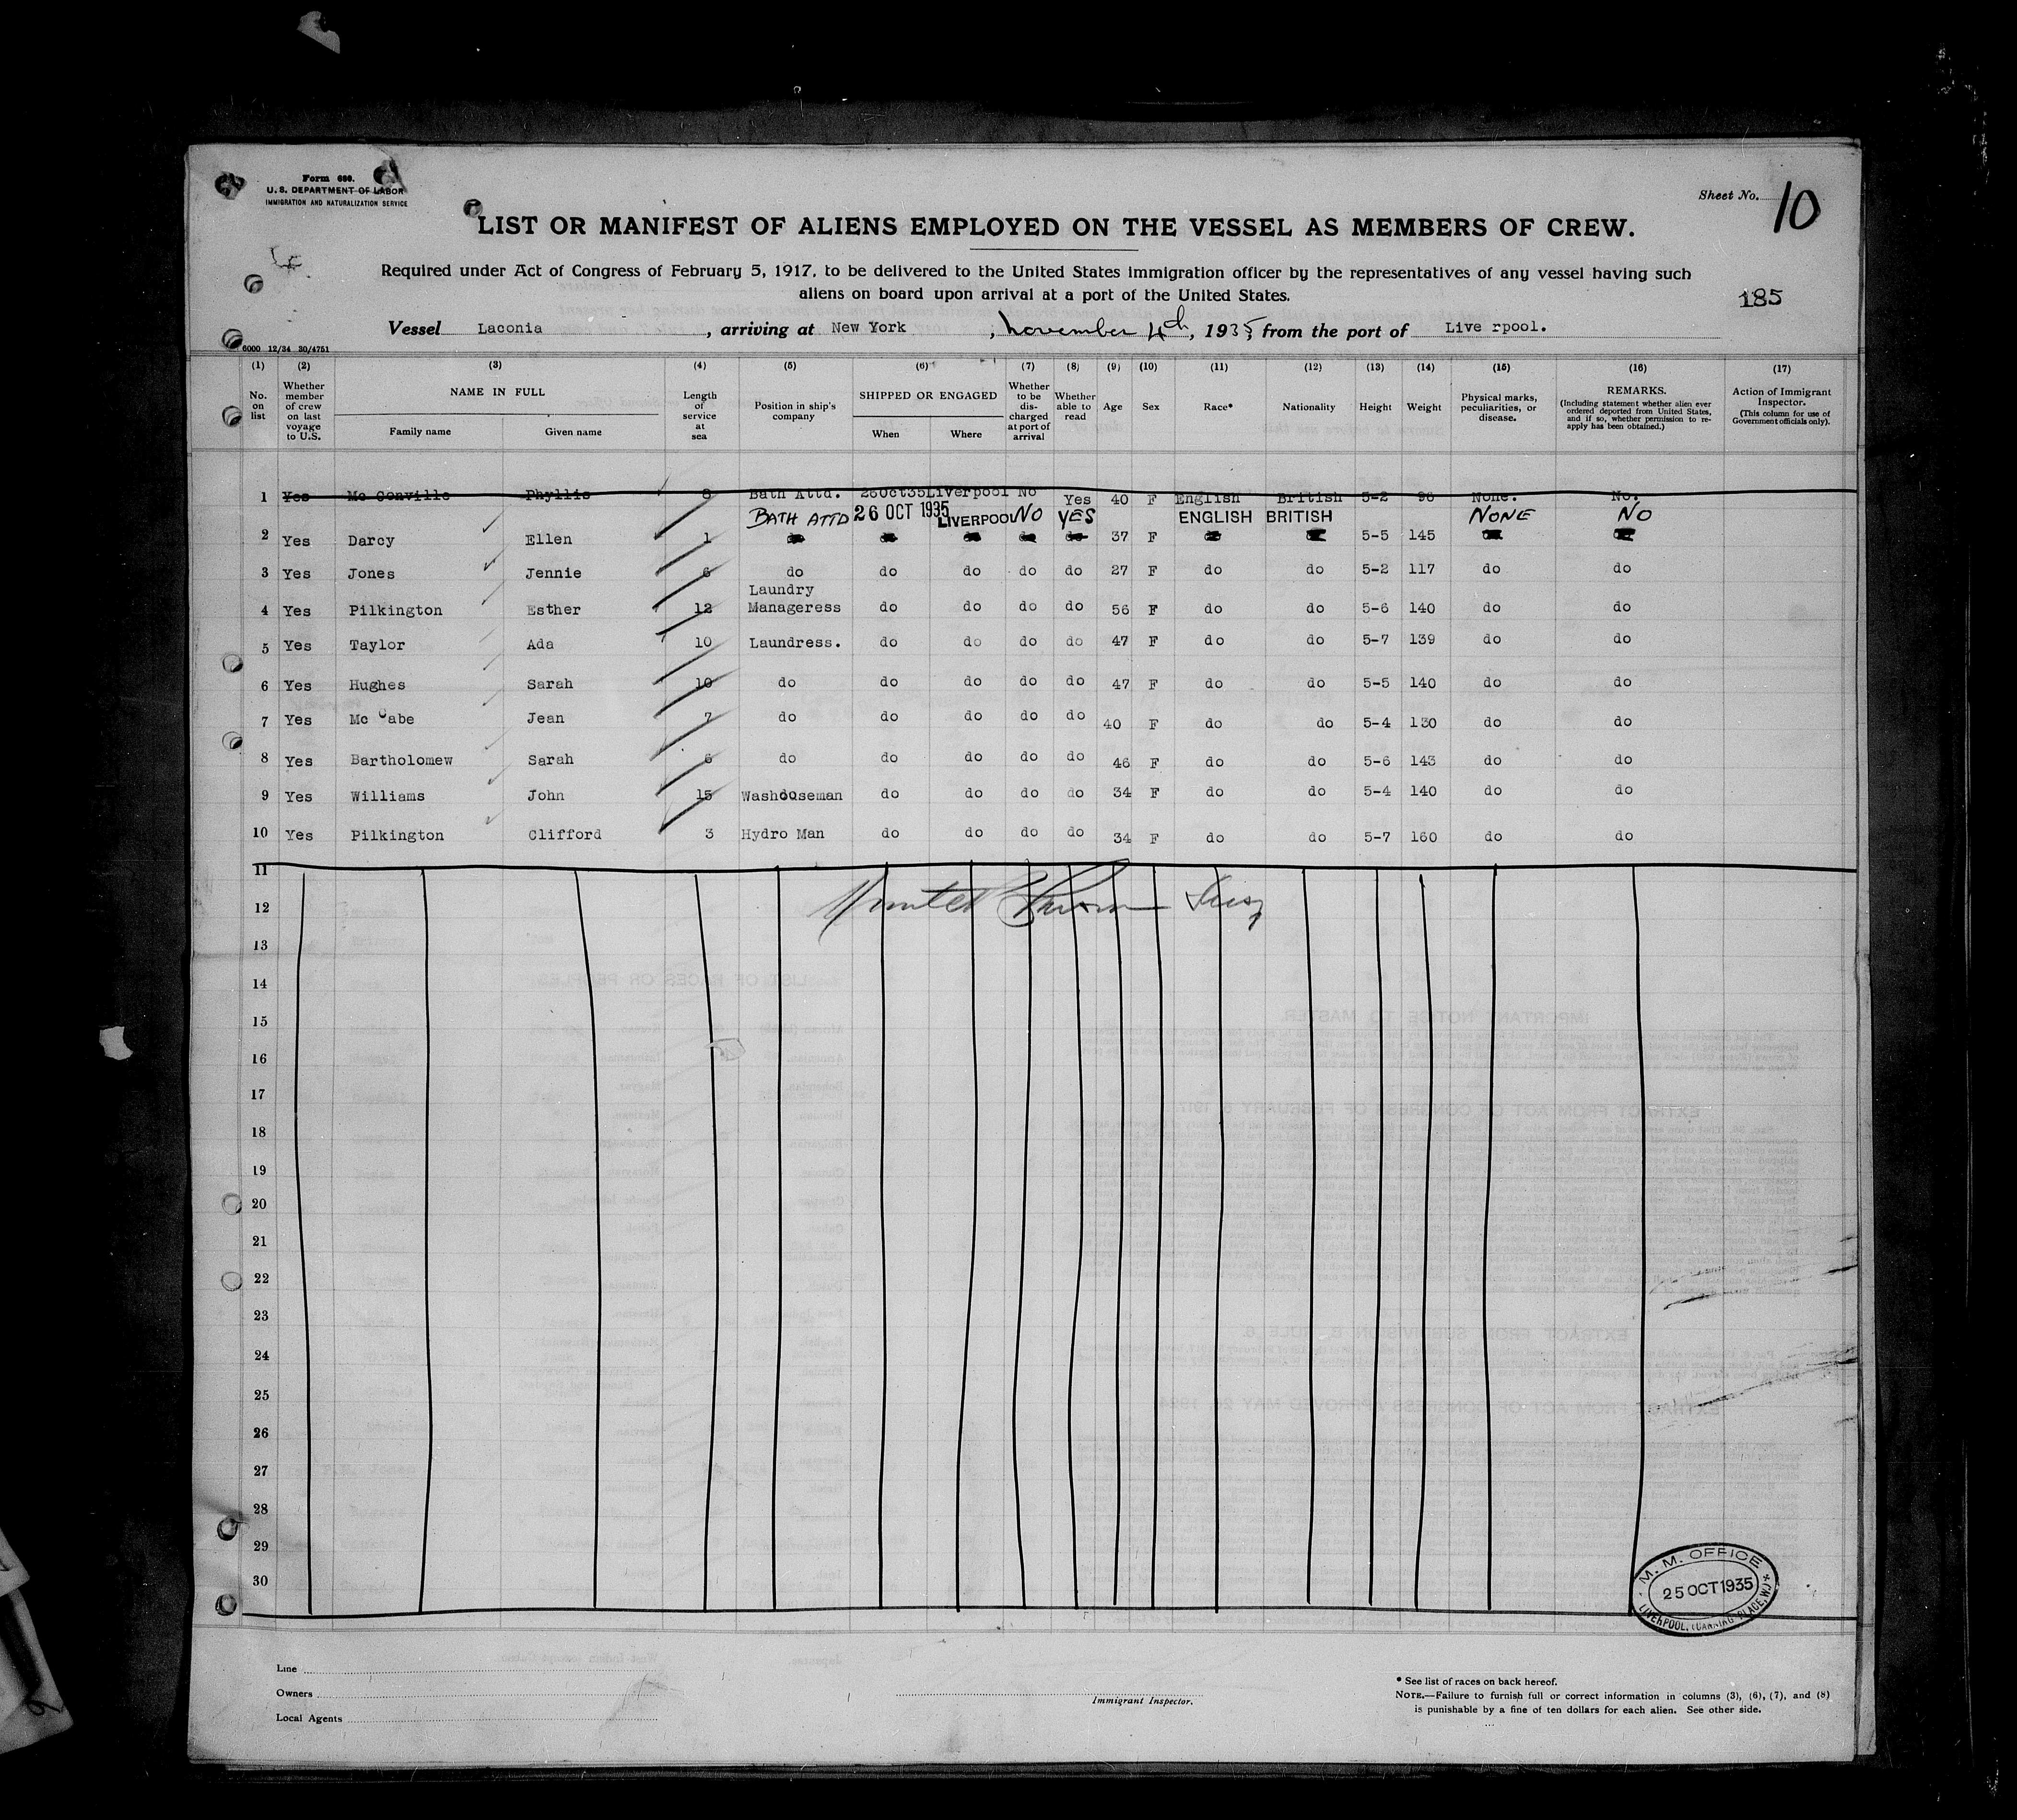 Form 680.
U. S. DEPARTMENT OF LABOR
IMMIGRATION AND NATURALIZATION SERVICE
Sheet No. 10
LIST OR MANIFEST OF ALIENS EMPLOYED ON THE VESSEL AS MEMBERS OF CREW.
Required under Act of Congress of February 5, 1917, to be delivered to the United States immigration officer by the representatives of any vessel having such
aliens on board upon arrival at a port of the United States.
185
Vessel Laconia, arriving at New York, November 4th, 1935, from the port of Live rpool.
6000 12/34 30/4751
(1) (2) (3) (4) (5) (6) (7) (8) (9) (10) (11) (12) (13) (14) (15) (16) (17)
No. on list Whether member of crew on last voyage to U.S. NAME IN FULL Family name Given name Length of service at sea Position in ship's company SHIPPED OR ENGAGED When Where Whether to be discharged at port of arrival Whether able to read Age Sex Race* Nationality Height Weight Physical marks, peculiarities, or disease. REMARKS. (Including statement whether alien ever ordered deported from United States, and if so, whether permission to re-apply has been obtained.) Action of Immigrant Inspector. (This column for use of Government officials only).
1 Yes Mc Conville Phyllis 8 Bath Attd. 26Oct35 Liverpool No Yes 40 F English British 5-2 96 None. No.
BATH ATTD 26 OCT 1935 LIVERPOOL NO YES ENGLISH BRITISH NONE NO
2 Yes Darcy Ellen 1 37 F 5-5 145
3 Yes Jones Jennie 6 do do do do do 27 F do do 5-2 117 do do
Laundry
4 Yes Pilkington Esther 12 Manageress do do do do 56 F do do 5-6 140 do do
5 Yes Taylor Ada 10 Laundress. do do do do 47 F do do 5-7 139 do do
6 Yes Hughes Sarah 10 do do do do do 47 F do do 5-5 140 do do
7 Yes Mc Cabe Jean 7 do do do do do 40 F do do 5-4 130 do do
8 Yes Bartholomew Sarah 6 do do do do do 46 F do do 5-6 143 do do
9 Yes Williams John 15 Washouseman do do do do 34 F do do 5-4 140 do do
10 Yes Pilkington Clifford 3 Hydro Man do do do do 34 F do do 5-7 160 do do
11
12
13
14
15
16
17
18
19
20
21
22
23
24
25
26
27
28
29
30
M. M. OFFICE
25 OCT 1935
LIVERPOOL, (CANNING PLACE, W)
Line
Owners
Local Agents
Immigrant Inspector.
* See list of races on back hereof.
NOTE.—Failure to furnish full or correct information in columns (3), (6), (7), and (8)
is punishable by a fine of ten dollars for each alien. See other side.